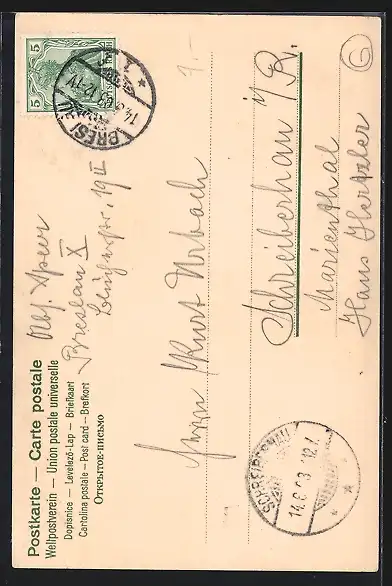 Postkarte — Carte postale
Weltpostverein — Union postale universelle
Dopisnice — Levelező-Lap — Briefkaart
Cartolina postale — Post card — Brefkort
Открытое письмо
Abs.
Breslau X
5
5
DEUTSCHES REICH
BRESLAU
14.
12-1V
1.
7.-
Herrn Kurt Urbach
Schreiberhau i/R.
Marienthal
Haus Hertzler
SCHREIBERHAU
14.6.03.12.1.